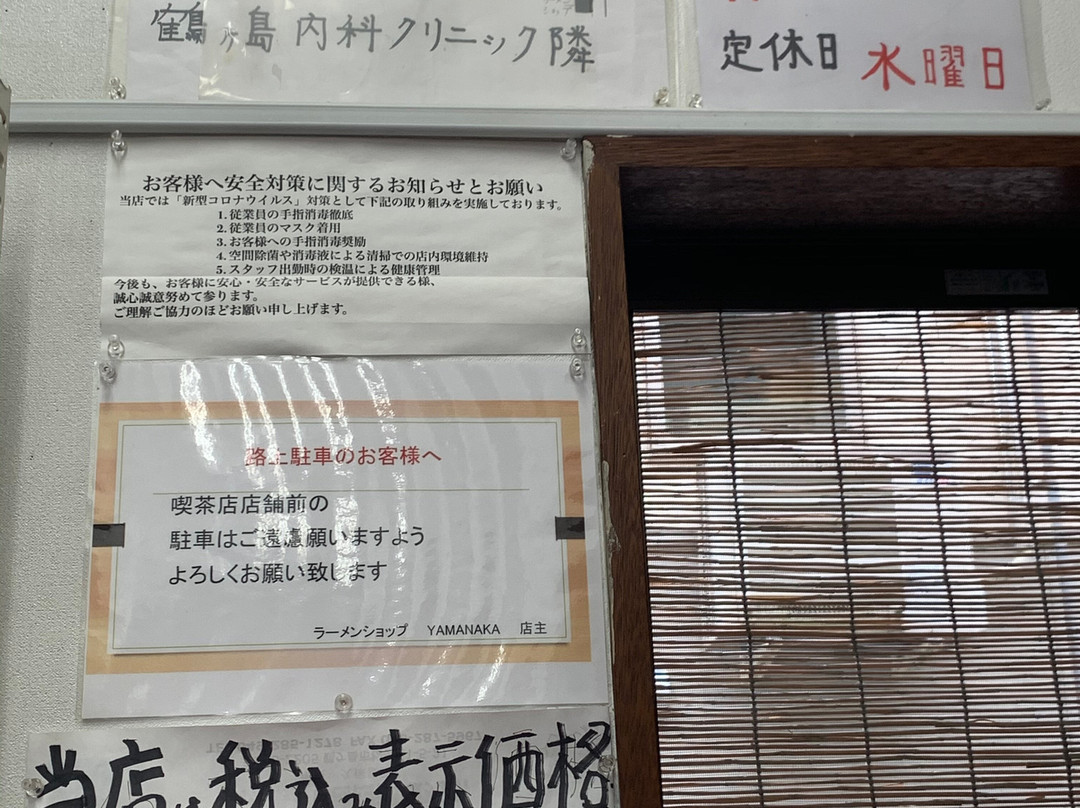 鶴ヶ島内科クリニック隣
定休日 水曜日
お客様へ安全対策に関するお知らせとお願い
当店では「新型コロナウイルス」対策として下記の取り組みを実施しております。
1. 従業員の手指消毒徹底
2. 従業員のマスク着用
3. お客様への手指消毒奨励
4. 空間除菌や消毒液による清掃での店内環境維持
5. スタッフ出勤時の検温による健康管理
今後も、お客様に安心・安全なサービスが提供できる様、
誠心誠意努めて参ります。
ご理解ご協力のほどお願い申し上げます。
路上駐車のお客様へ
喫茶店店舗前の
駐車はご遠慮願いますよう
よろしくお願い致します
ラーメンショップ YAMANAKA 店主
当店は税込み表示価格